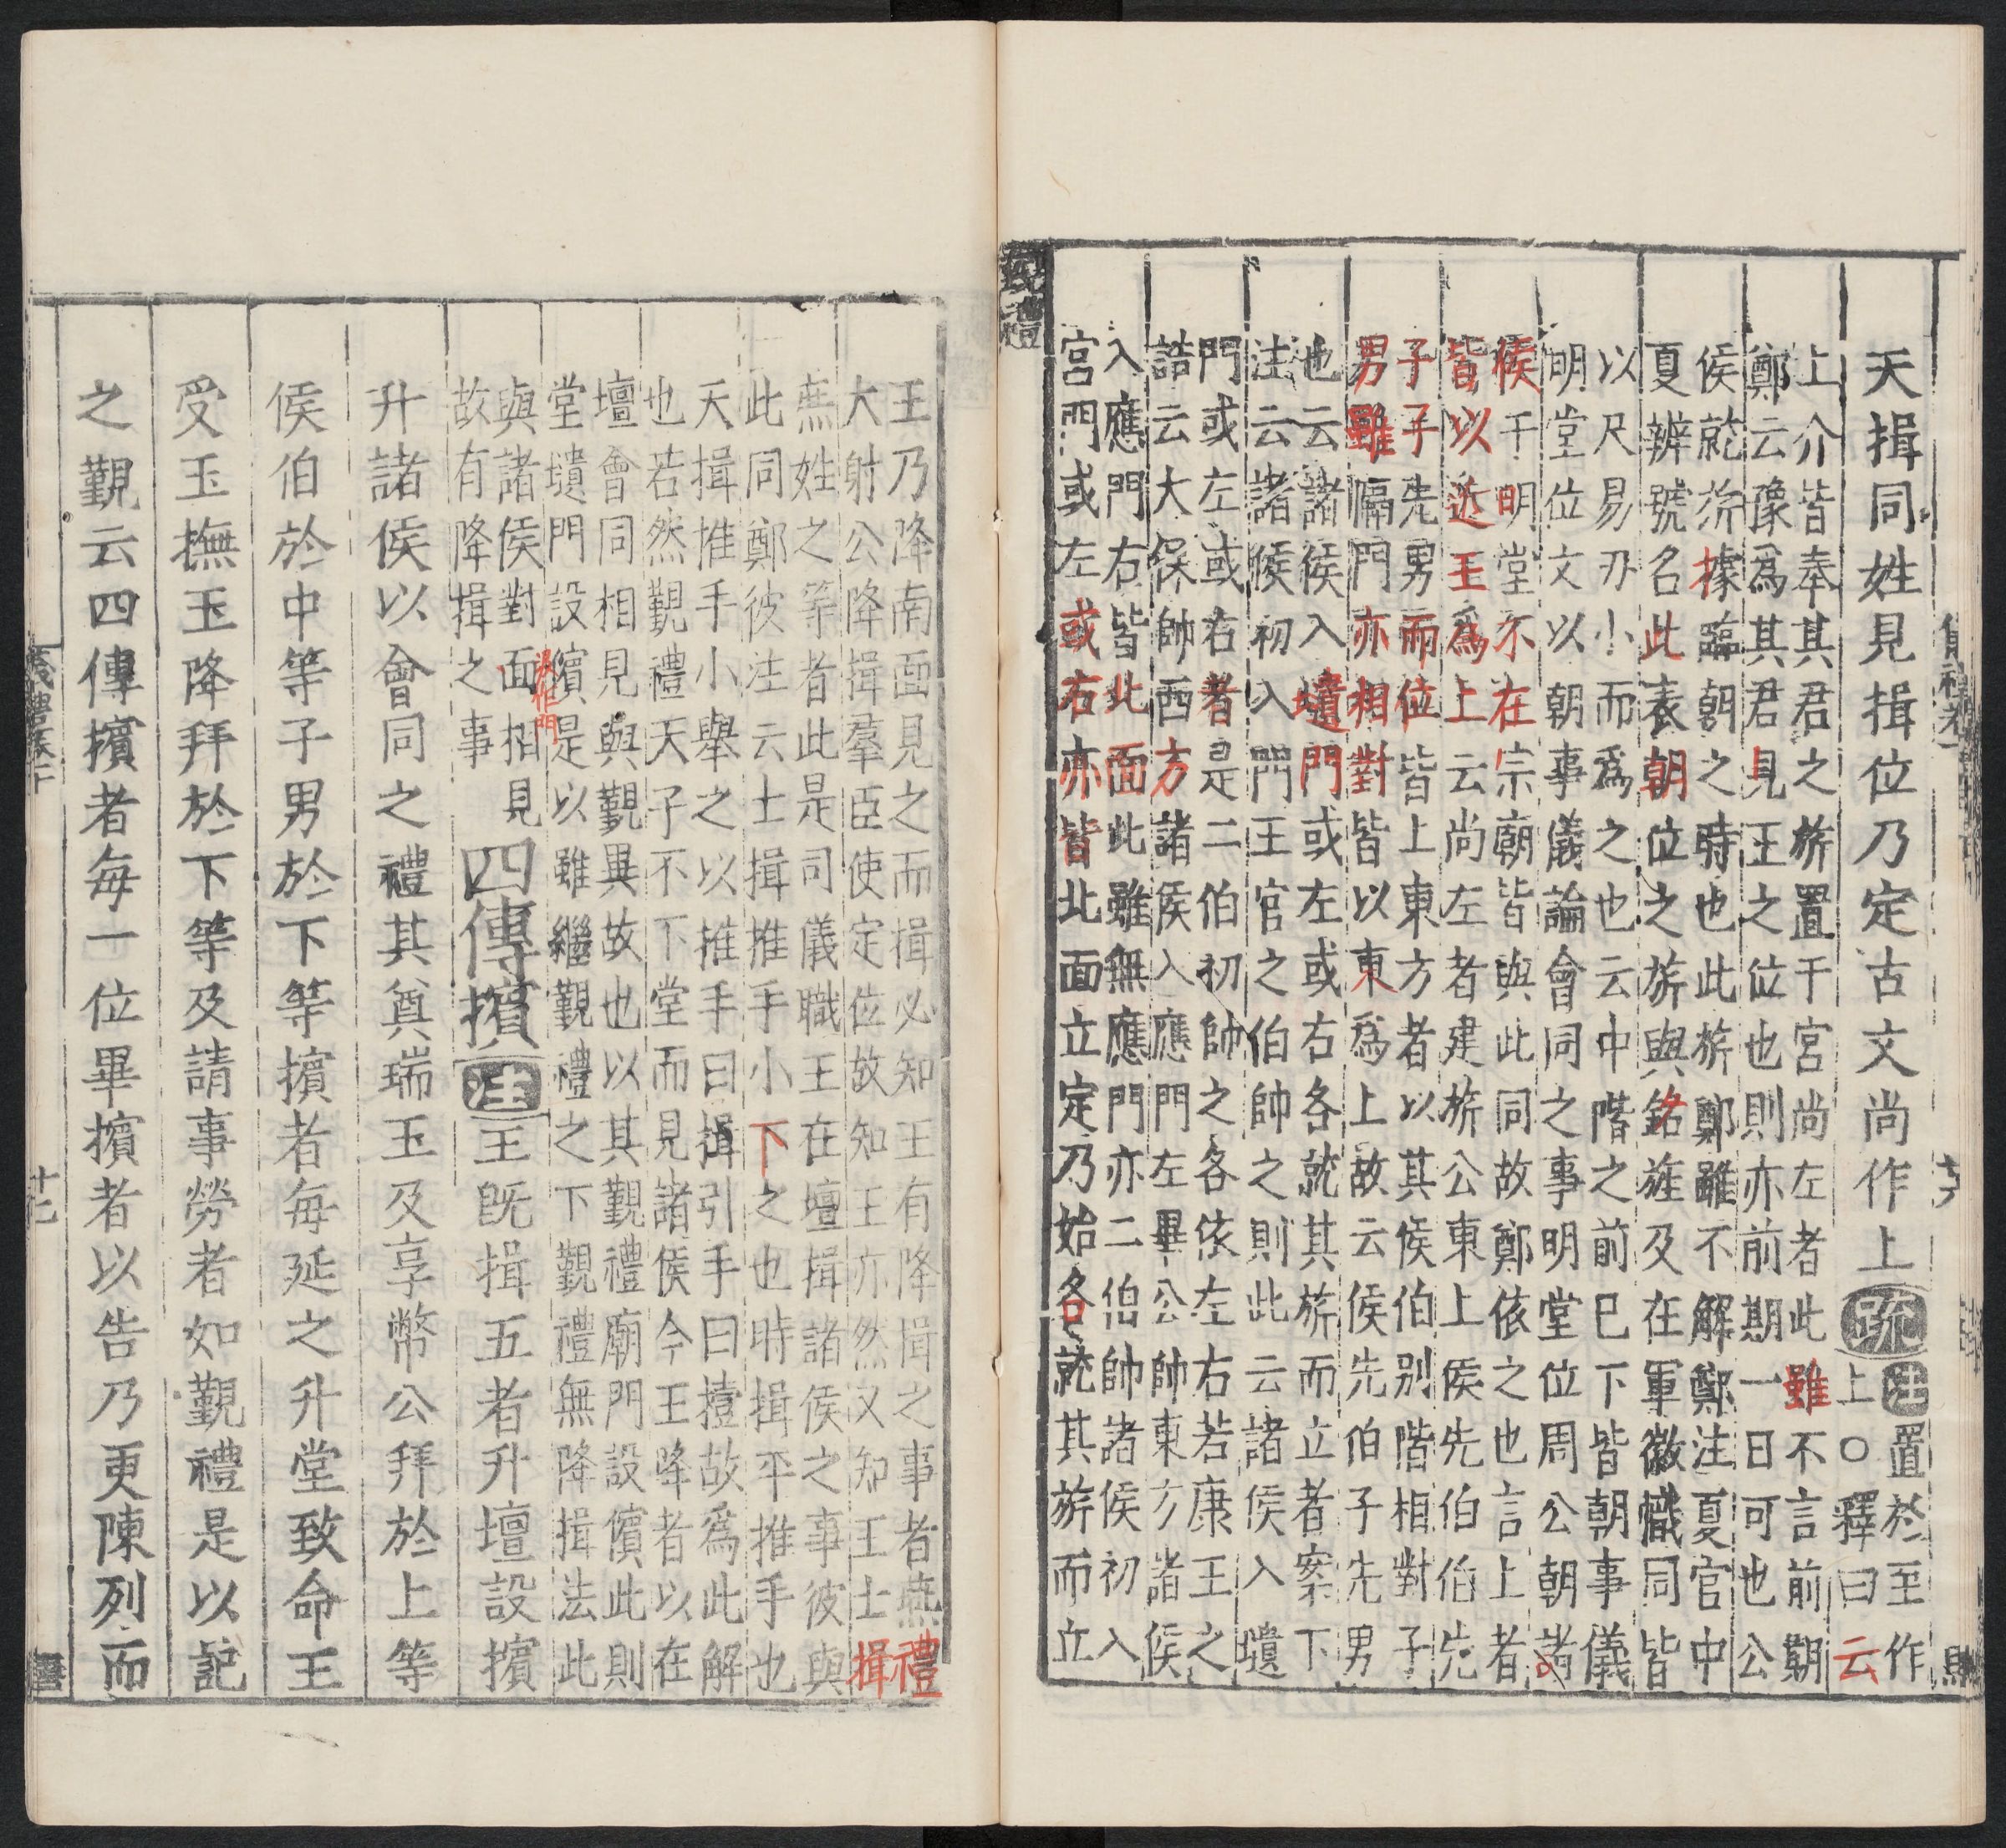 天揖同姓見揖位乃定古文尚作上疏注置於至作
上○釋曰云
上介皆奉其君之旂置于宮尚左者此雖不言前期
鄭云豫爲其君見王之位也則亦前期一日可也公
侯就旂據臨朝之時也此旂鄭雖不解鄭注夏官中
夏辨號名此表朝位之旂與銘旌及在軍徽幟同皆
以尺易刃小而爲之也云中階之前已下皆朝事儀
明堂位文以朝事儀論會同之事明堂位周公朝諸
侯于明堂不在宗廟皆與此同故鄭依之也言上者
皆以近王爲上云尚左者建旂公東上侯先伯伯先
子子先男而位皆上東方者以其侯伯別階相對子
男雖隔門亦相對皆以東爲上故云侯先伯子先男
也云諸侯入壝門或左或右各就其旂而立者案下
注云諸侯初入門王官之伯帥之則此云諸侯入壝
門或左或右者是二伯初帥之各依左右若康王之
誥云大保帥西方諸侯入應門左畢公帥東方諸侯
入應門右皆北面此雖無應門亦二伯帥諸侯初入
宮門或左或右亦皆北面立定乃始各就其旂而立
王乃降南面見之而揖必知王有降揖之事者燕禮
大射公降揖羣臣使定位故知王亦然又知王士揖
庶姓之等者此是司儀職王在壇揖諸侯之事彼與
此同鄭彼注云士揖推手小下之也時揖平推手也
天揖推手小舉之以推手曰揖引手曰撎故爲此解
也若然覲禮天子不下堂而見諸侯今王降者以在
壇會同相見與覲異故也以其覲禮廟門設儐此則
堂壝門設擯是以雖繼覲禮之下覲禮無降揖法此
與諸侯對面相見
故有降揖之事
四傳擯注王旣揖五者升壇設擯
升諸侯以會同之禮其奠瑞玉及享幣公拜於上等
侯伯於中等子男於下等擯者每延之升堂致命王
受玉撫玉降拜於下等及請事勞者如覲禮是以記
之覲云四傳擯者每一位畢擯者以告乃更陳列而